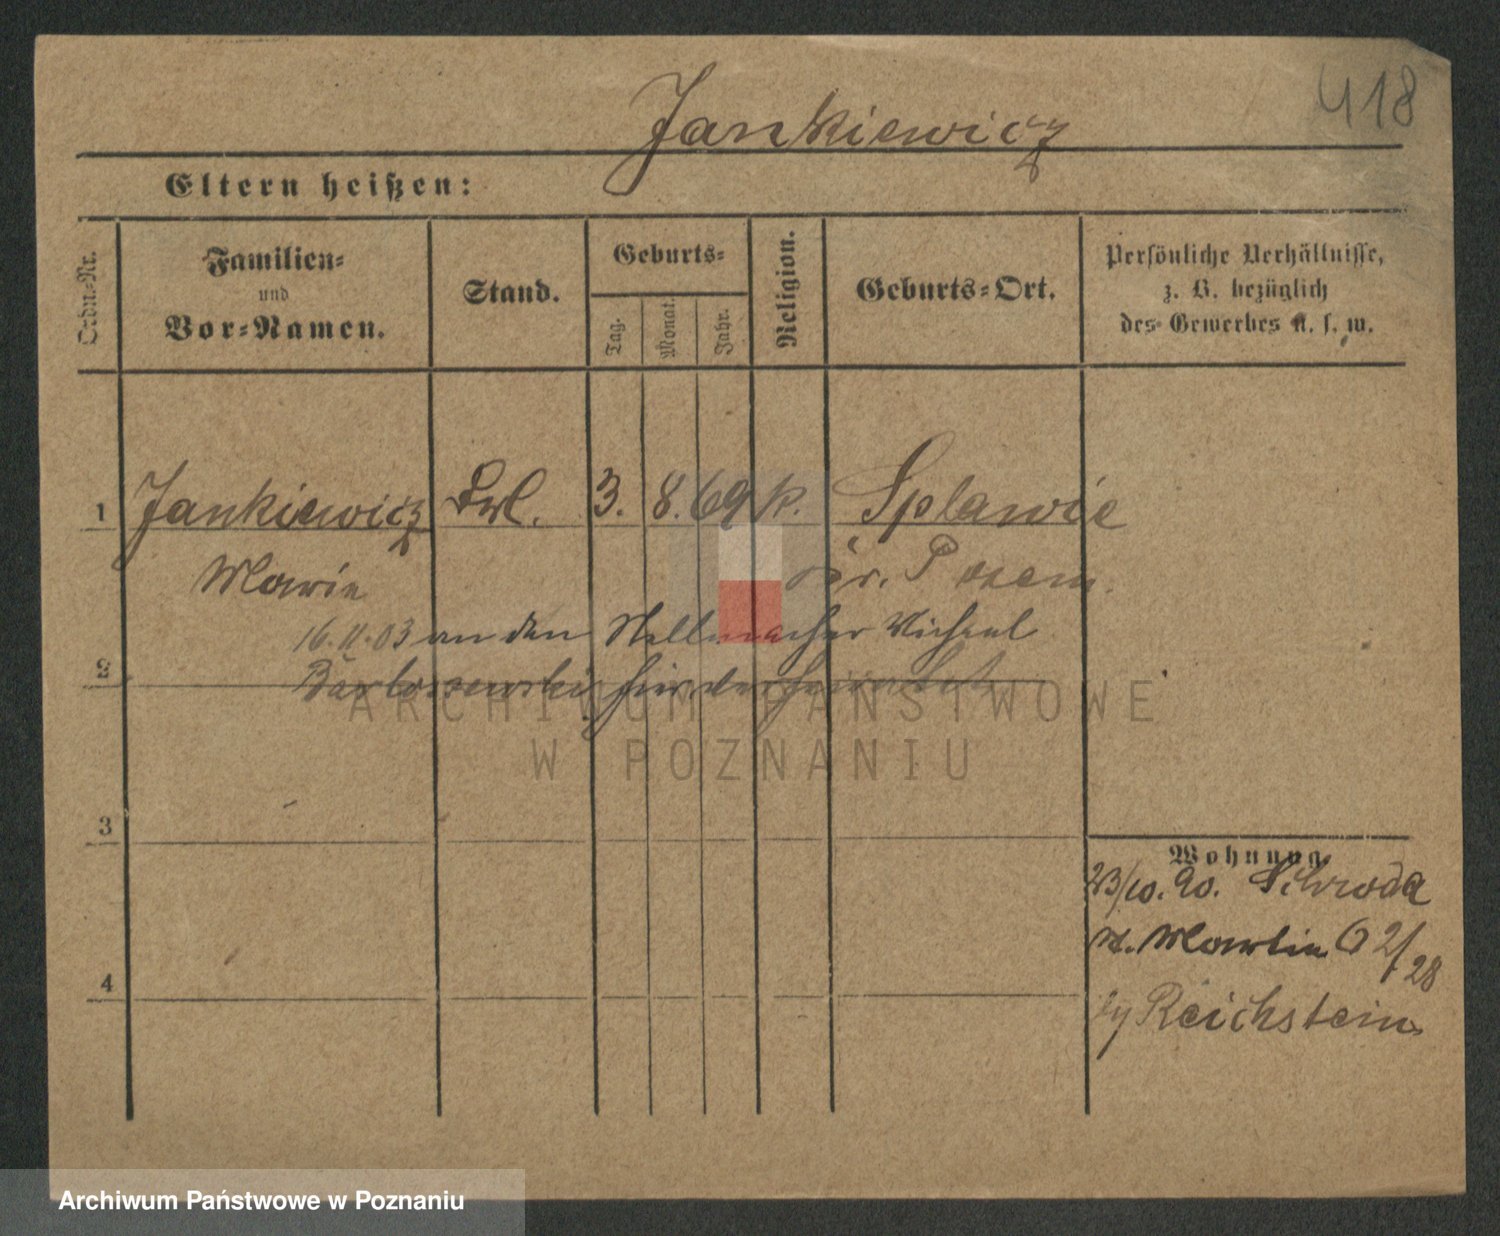 418
Jankiewicz
Eltern heißen:
Ordn.-Nr.
Familien-
und
Vor-Namen.
Stand.
Geburts-
Tag.
Monat.
Jahr.
Religion.
Geburts-Ort.
Persönliche Verhältnisse,
z. B. bezüglich
des Gewerbes u. s. w.
1 Jankiewicz Frl. 3. 8. 69 k. Splawie
Marie Kr. Posen.
16.11.03 an den Stellmacher Michael
2 Bartoszewski hier verheiratet
3
Wohnung
23/10. 90. Schroda
St. Martin 62/28
by Reichstein
4
ARCHIWUM PAŃSTWOWE
W POZNANIU
Archiwum Państwowe w Poznaniu